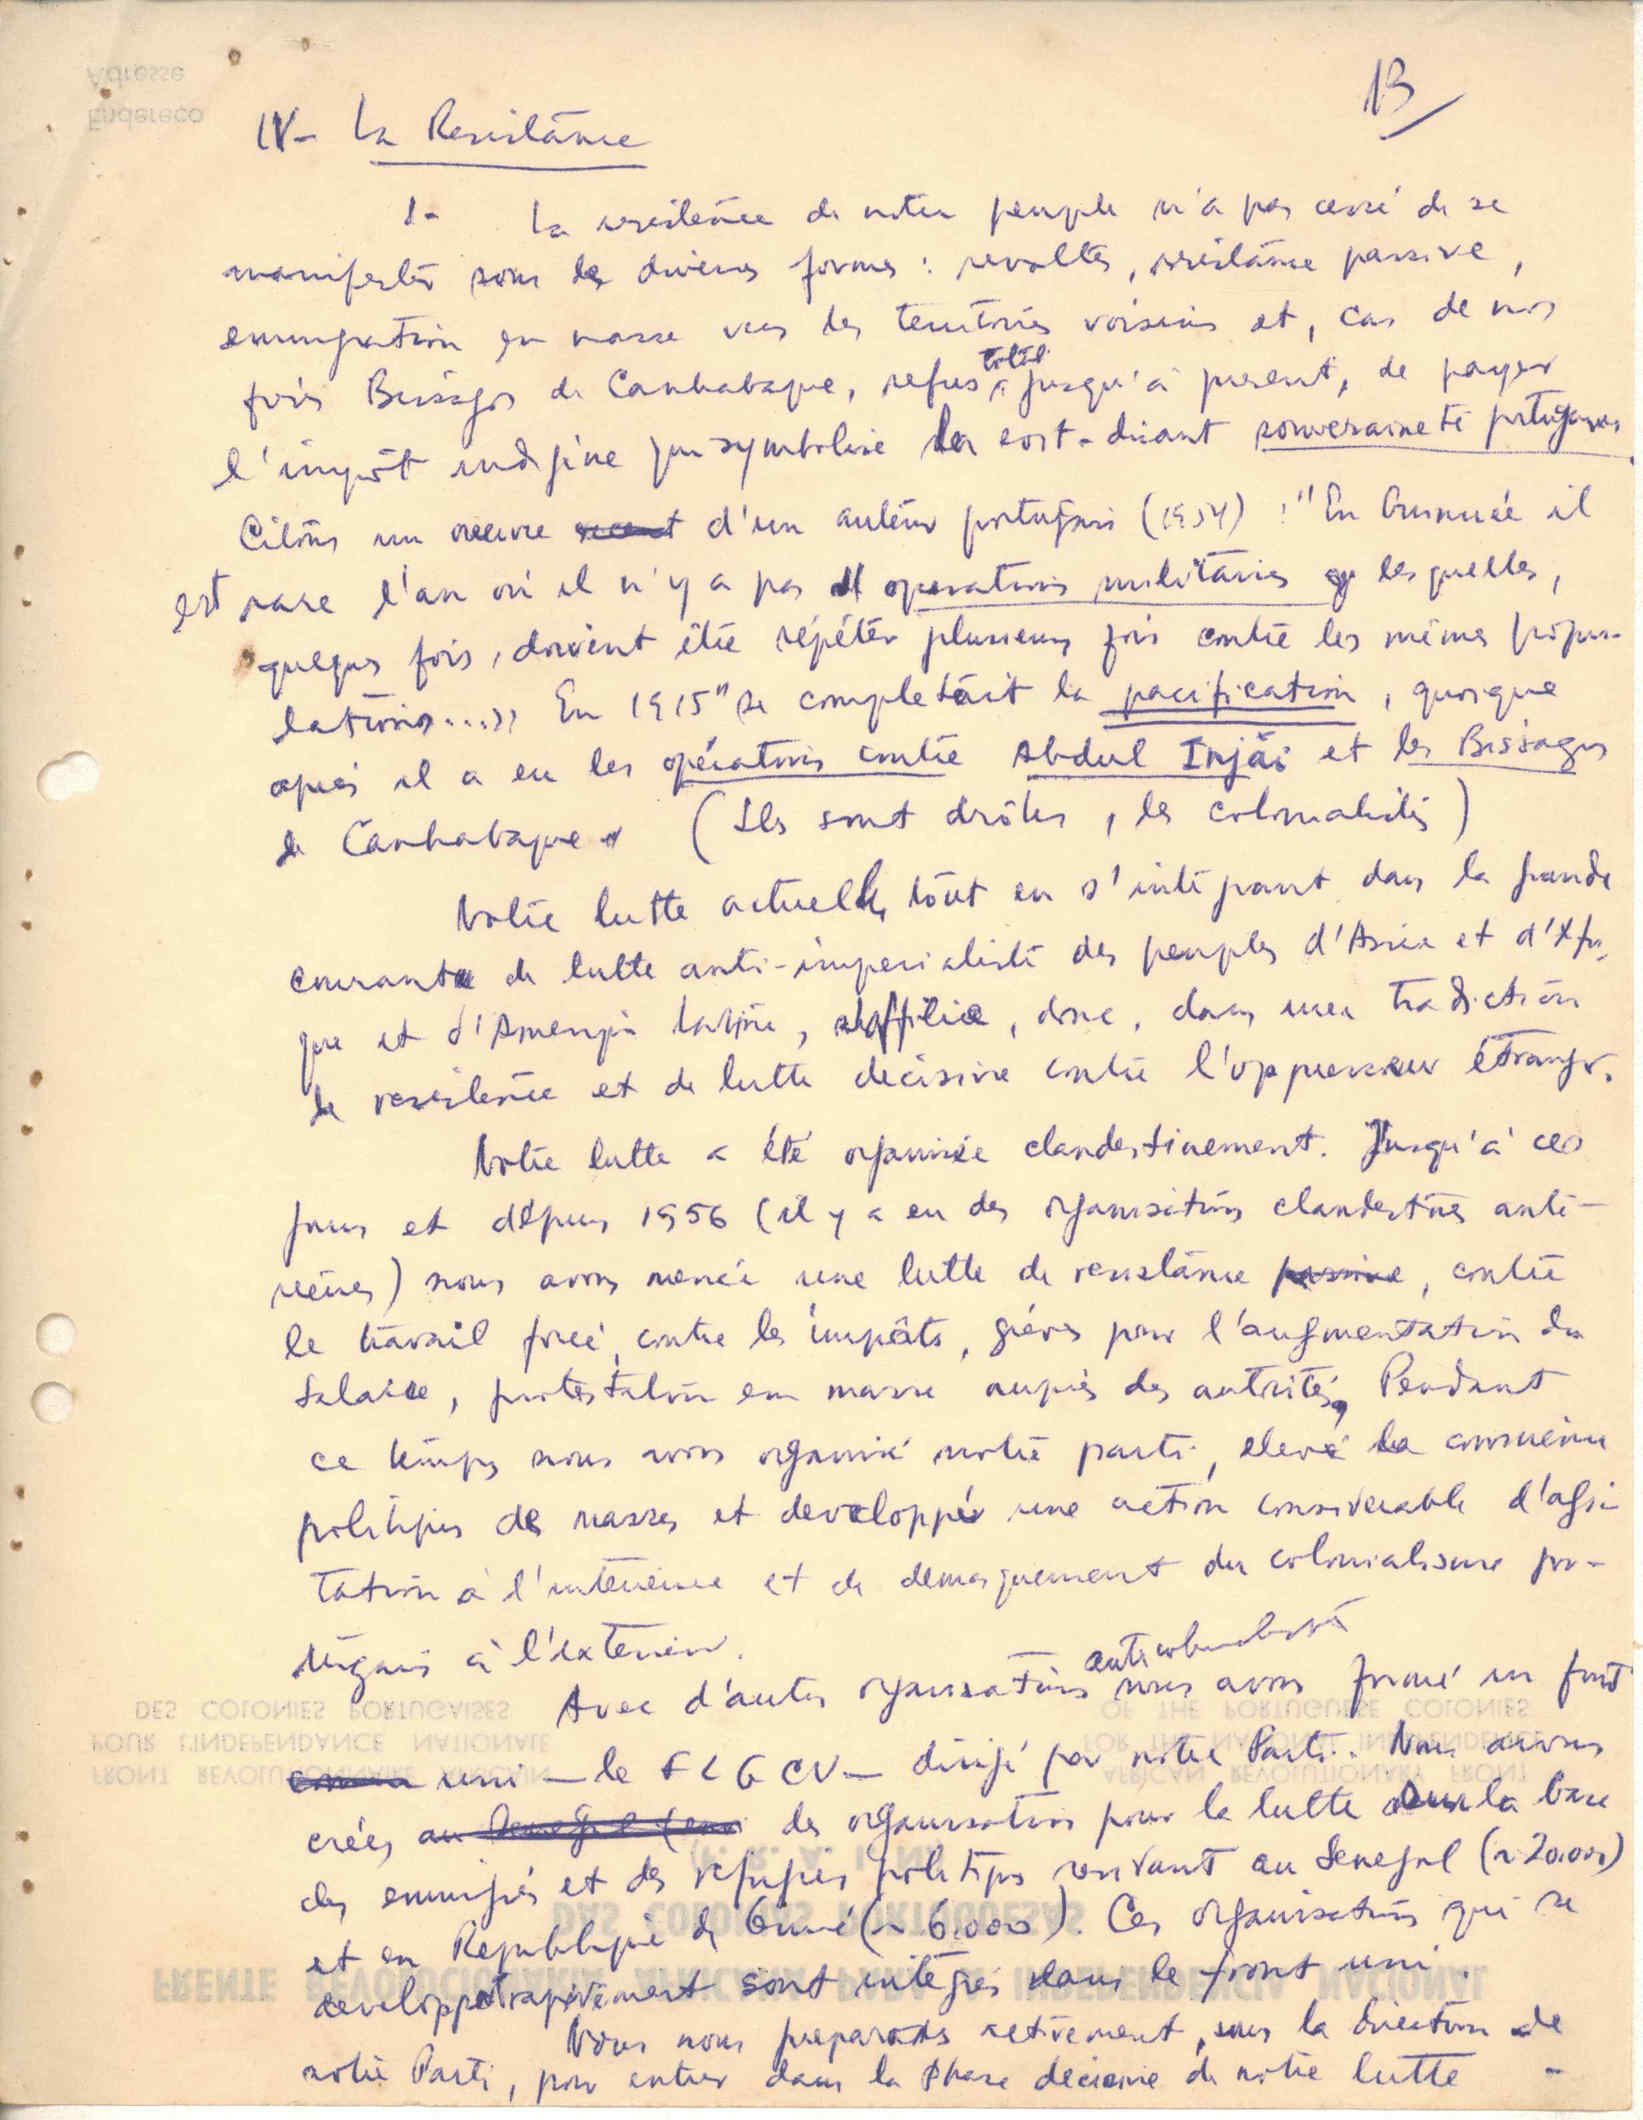 13
IV - La Resistance
1- La resistence de notre peuple n'a pas cessé de se
manifester sous les diverses formes : revoltes, resistance passive,
emmigration en masse vers les territoires voisins et, cas de nos
total
frères Bissagos de Canhabaque, refus jusqu'à present, de payer
l'impôt indigène qui symbolise la soit-disant souveraineté portugaise.
Citons un oeuvre recent d'un auteur portugais (1954) : "En Guinée il
est rare l'an où il n'y a pas d'operations militaires lesquelles,
quelques fois, doivent être répéter plusieurs fois contre les mêmes popu-
lations...» En 1915 "se completait la pacification, quoique
après il a eu les opérations contre Abdul Injãi et les Bissagos
de Canhabaque" (Ils sont drôles, les colonialistes)
Notre lutte actuelle, tout en s'intégrant dans la grande
courante de lutte anti-imperialiste des peuples d'Asie et d'Afri
que et d'Amerique latine, s'affilie, donc, dans une tradiction
de resistence et de lutte decisive contre l'oppresseur étranger.
Notre lutte a été organisée clandestinement. Jusqu'à ces
jours et depuis 1956 (il y a eu des organisations clandestines anté-
rieures) nous avons menée une lutte de resistance passive, contre
le travail forcé, contre les impôts, grèves pour l'augmentation du
salaire, protestation en masse auprès des autorités, Pendant
ce temps nous avons organisé notre parti, elevé la conscience
politique des masses et developpér une action considerable d'agi-
tation à l'interieure et de demasquement du colonialisme por-
tugais à l'exterieur.
anticolonialiste
Avec d'autres organisations nous avons formé un front
uni - le FLGCV - dirigé par notre Parti. Nous avons
crées au Senegal des organisations pour la lutte sur la base
des emmigrés et des refugiés politiques vivant au Senegal (~ 20.000)
et en Republique de Guiné (~ 6.000). Ces organisations qui se
developpent rapidement sont intégrés dans le front uni.
Nous nous preparons activement, sous la direction de
notre Parti, pour entrer dans la phase decisive de notre lutte -
Adresse
Endereço
DES COLONIES PORTUGAISES
POUR L'INDEPENDANCE NATIONALE
FRONT REVOLUTIONNAIRE AFRICAIN
OF THE PORTUGUESE COLONIES
FOR THE NATIONAL INDEPENDENCE
AFRICAN REVOLUTIONARY FRONT
DAS COLONIAS PORTUGUESAS
FRENTE REVOLUCIONARIA AFRICANA PARA A INDEPENDENCIA NACIONAL